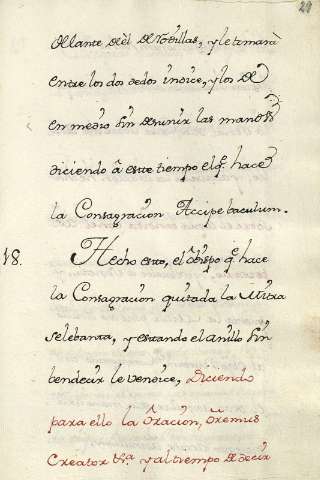 28
delante de èl de Rodillas, y le tomarà
entre los dos dedos indice, y los de
en medio sin desunir las manos
diciendo â este tiempo el q.e hace
la Consagracion Accipe baculum.
18. Hecho esto, el Obispo q.e hace
la Consagracion quitada la Mitra
se lebanta, y estando el anillo sin
bendecir le vendice, diciendo
para ello la Oracion, Oremus
Creator &.a y al tiempo de decir